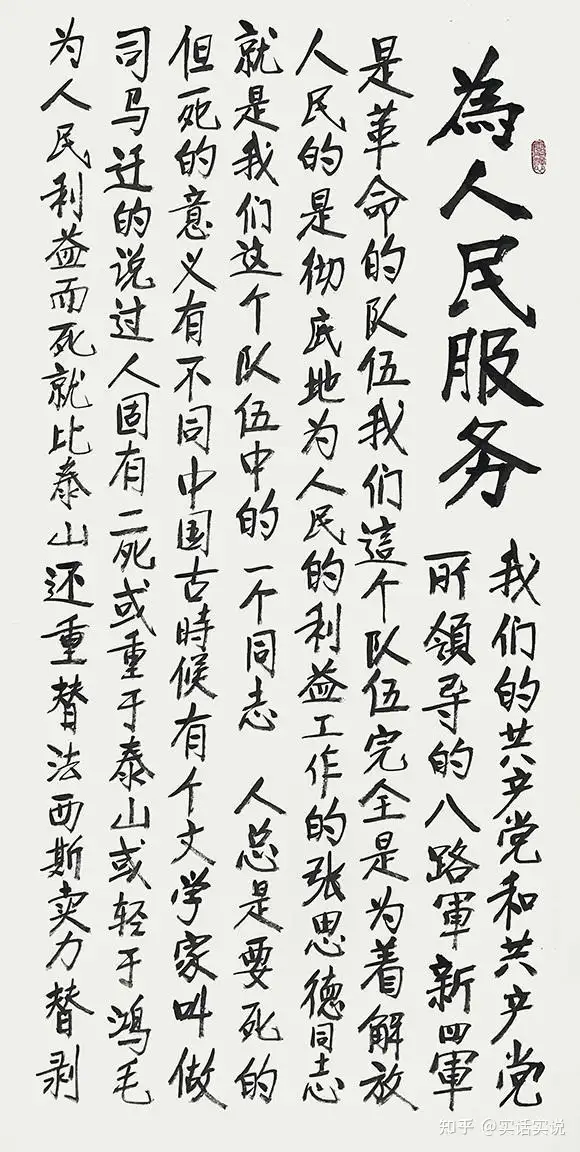 為人民服务
我们的共产党和共产党
所領导的八路軍新四軍
是革命的队伍我们這个队伍完全是为着解放
人民的是彻底地为人民的利益工作的张思德同志
就是我们这个队伍中的一个同志 人总是要死的
但死的意义有不同中国古時候有个文学家叫做
司马迁的说过人固有二死或重于泰山或轻于鸿毛
为人民利益而死就比泰山还重替法西斯卖力替剥
知乎 @实话实说